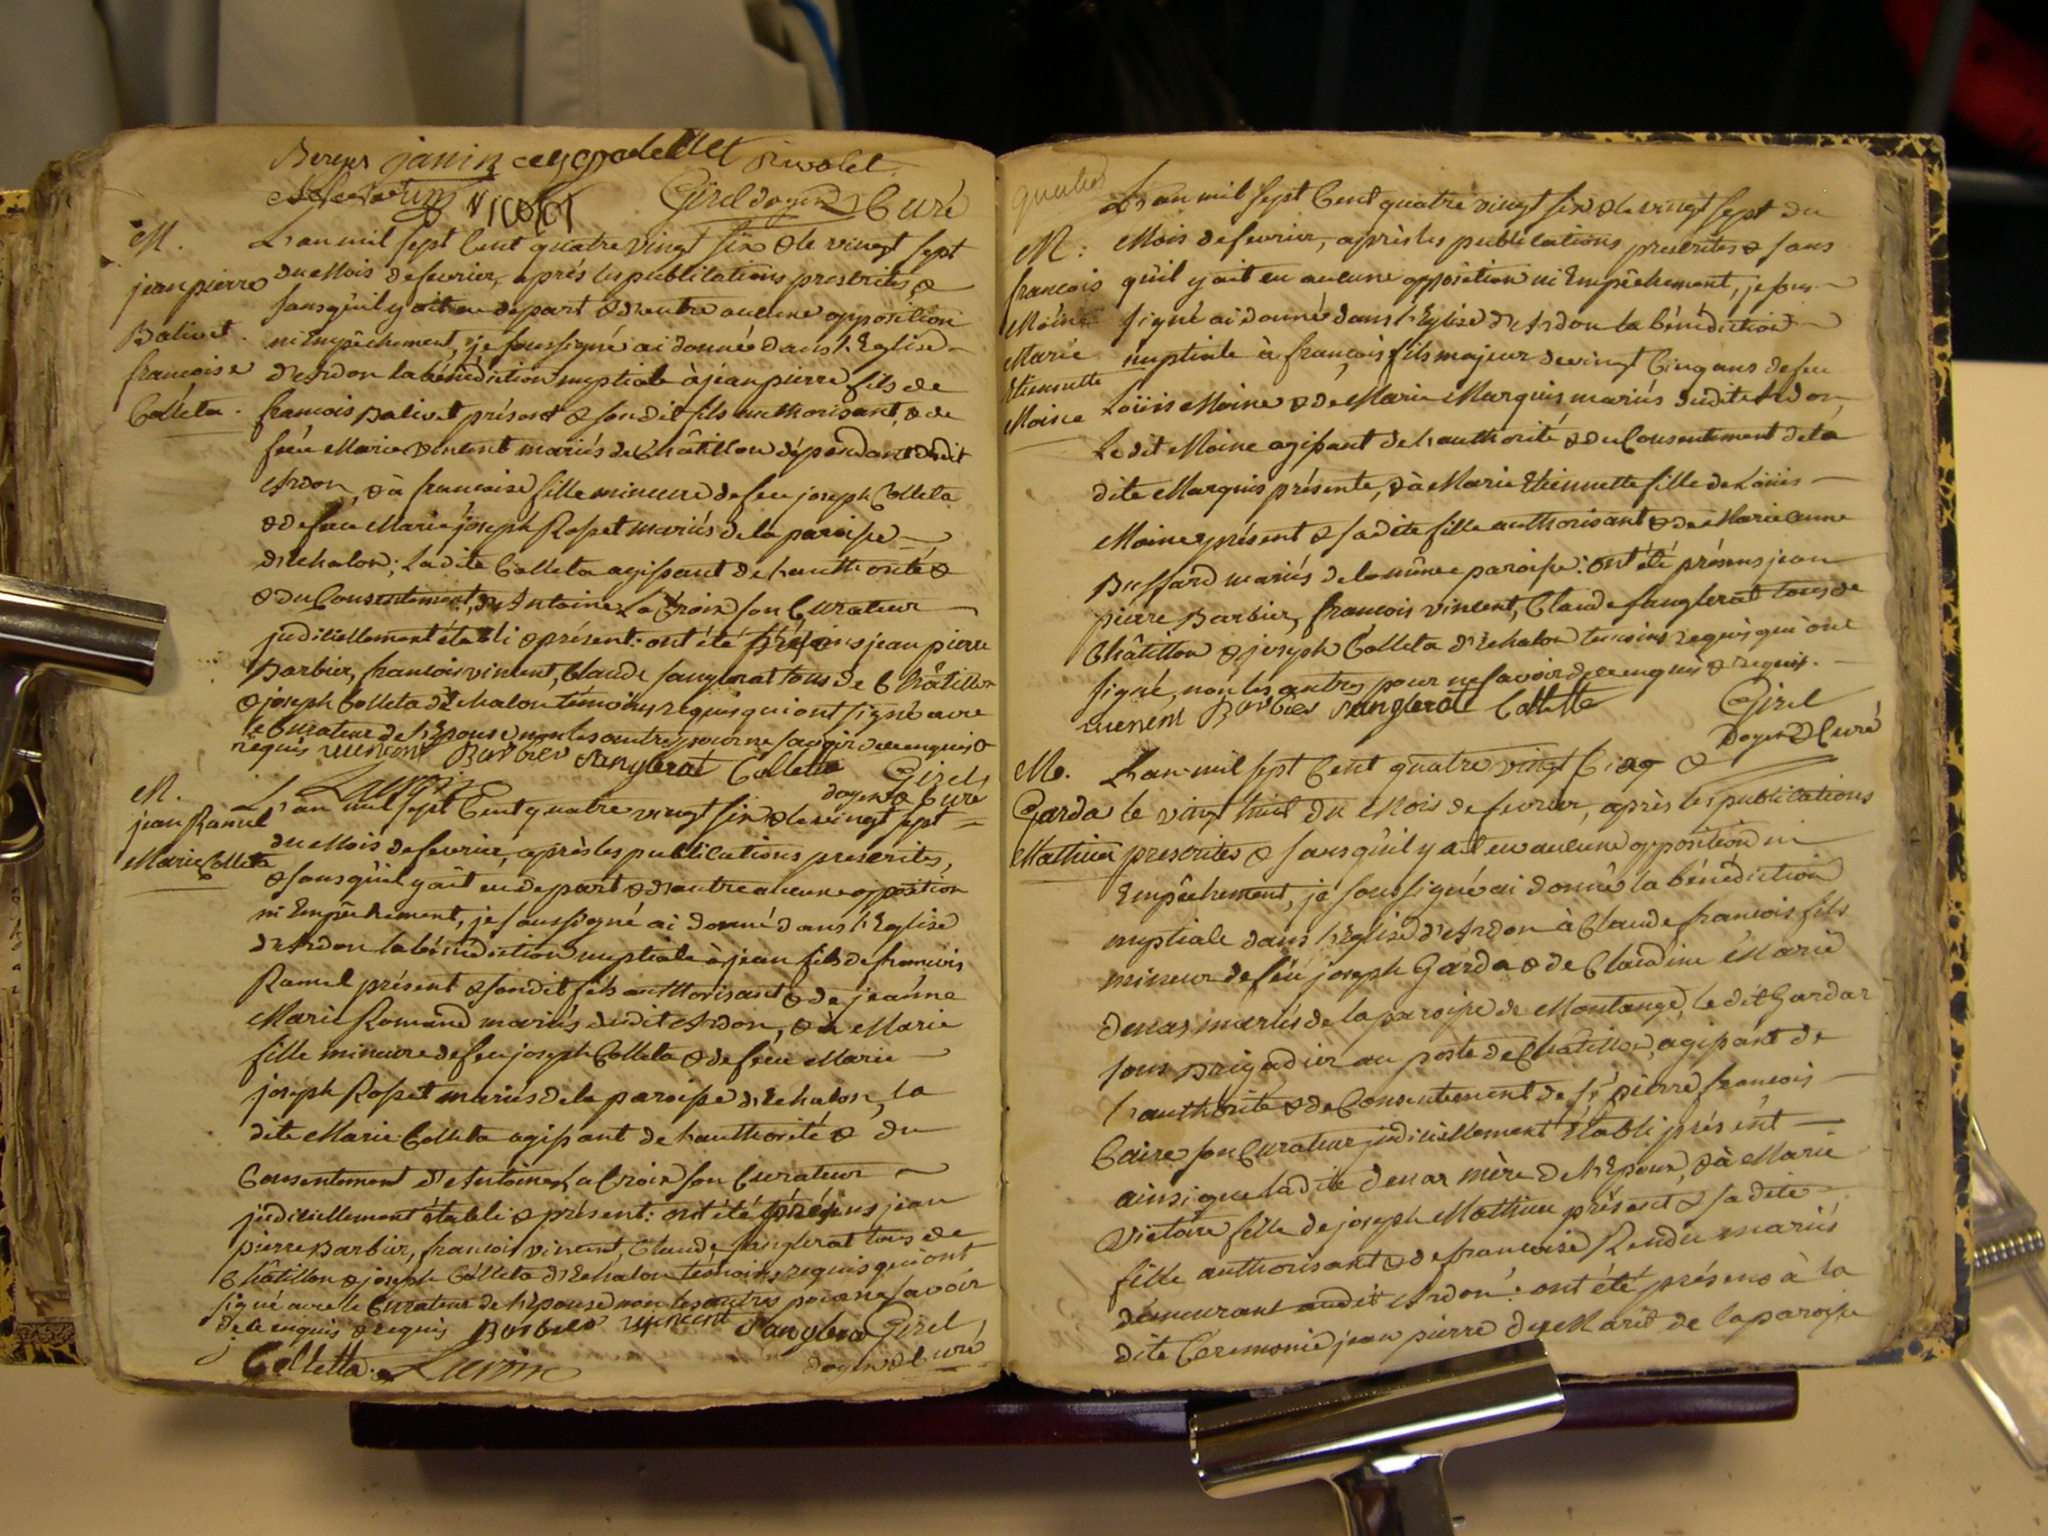 Berger janin
Girel doyen & Curé
M.
jean pierre
Balivet.
francoise
Colleta.
L'an mil sept Cent quatre vingt six & le vingt sept
du Mois de fevrier, aprés les publications prescrites, &
sans qu'il y ait eu de part & d'autre aucune opposition
ni Empêchement, je soussigné ai donné dans l'Eglise
d'Ardon la bénédiction nuptiale à jean pierre fils de
francois Balivet présent & son dit fils authorisant, & de
feüe Marie vincent mariés de Châtillon dépendant dudit
Ardon, & à francoise fille mineure de feu joseph Colleta
& de feüe Marie joseph Rosset mariés de la paroisse
d'Echalon; La dite Colleta agissant de l'authorité &
& du Consentement, d'Antoine La Croix son Curateur
judiciellement établi & présent: ont été présens jean pierre
Barbier, francois vincent, Claude sanglerat tous de Châtillon
& joseph Colleta d'Echalon témoins requis qui ont signé avec
le Curateur de l'Epouse non les autres pour ne savoir de ce enquis &
requis vuencent Barbier Sanglerat Colletta Girel
doyen & Curé
M.
jean Ramel
Marie Colleta
L'an mil sept Cent quatre vingt six & le vingt sept
du Mois de fevrier, après les publications prescrites,
& sans qu'il y ait eu de part & d'autre aucune opposition
ni Empêchement, je soussigné ai donné dans l'Eglise
d'Ardon la bénédiction nuptiale à jean fils de francois
Ramel présent & son dit fils authorisant & de jeanne
Marie Romand mariés dudit Ardon, & à Marie
fille mineure de feu joseph Colleta & de feüe Marie
joseph Rosset mariés de la paroisse d'Echalon, la
dite Marie Colleta agissant de l'authorité & du
Consentement d'Antoine La Croix son Curateur
judiciellement établi & présent: ont été présens jean
pierre Barbier, francois vincent, Claude sanglerat tous de
Châtillon & joseph Colleta d'Echalon temoins requis qui ont
signé avec le Curateur de l'Epouse non les autres pour ne savoir
de ce enquis & requis Barbier vuencent Sanglera Girel
Colletta doyen & Curé
M.
francois
Moine
Marie
Etiennette
Moine
L'an mil sept Cent quatre vingt six & le vingt sept du
Mois de fevrier, après les publications prescrites & sans
qu'il y ait eu aucune opposition ni Empêchement, je sous-
signé ai donné dans l'Eglise d'Ardon la bénédiction
nuptiale à francois fils majeur de vingt Cinq ans de feu
Loüis Moine & de Marie Marquis mariés dudit Ardon,
Le dit Moine agissant de l'authorité & du Consentement de la
dite Marquis présente, & à Marie Etiennette fille de Loüis
Moine présent & sa dite fille authorisant & de Marie anne
Buffard mariés de la même paroisse: ont été présens jean
pierre Barbier, francois vincent, Claude sanglerat tous de
Châtillon & joseph Colleta d'Echalon temoins requis qui ont
signé, non les autres pour ne savoir de ce enquis & requis.
vuencent Barbier Sanglerat Colletta Girel
Doyen & Curé
M.
Garda
Mathieu
L'an mil sept Cent quatre vingt Cinq &
le vingt huit du Mois de fevrier, après les publications
prescrites & sans qu'il y ait eu aucune opposition ni
Empêchement, je soussigné ai donné la bénédiction
nuptiale dans l'Eglise d'Ardon à Claude francois fils
mineur de feü joseph Garda & de Claudine Marie
Denar mariés de la paroisse de Montange, le dit Gardar
sous Brigadier au poste de Chatillon, agissant de
l'authorité & de Consentement de Sr pierre francois
Caire son Curateur judiciellement établi présent
ainsi que ladite Denar mère de l'Epoux, & à Marie
Victoire fille de joseph Mathieu présent & sa dite
fille authorisant & de francoise Rendu mariés
demeurant audit Ardon: ont été présens à la
dite Cérémonie jean pierre de la paroisse